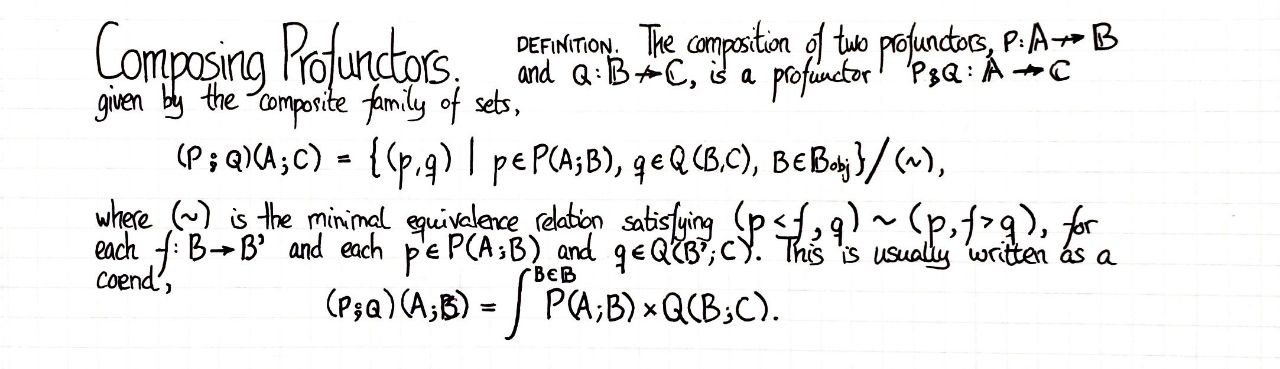 Composing Profunctors. DEFINITION. The composition of two profunctors, P: 𝔸 ⇸ 𝔹
and Q: 𝔹 ⇸ ℂ, is a profunctor P⨟Q: 𝔸 ⇸ ℂ
given by the composite family of sets,
(P⨟Q)(A;C) = {(p,q) | p∈P(A;B), q∈Q(B,C), B∈𝔹obj}/(~),
where (~) is the minimal equivalence relation satisfying (p<f,q) ~ (p,f>q), for
each f: B→B' and each p∈P(A;B) and q∈Q(B';C). This is usually written as a
coend,
(P⨟Q)(A;B) = ∫^{B∈𝔹} P(A;B) × Q(B;C).